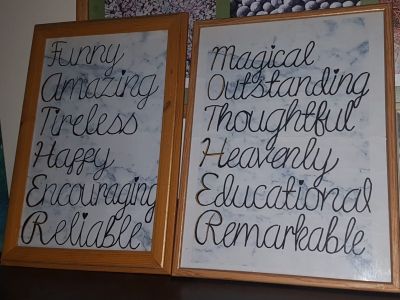 Funny
Amazing
Tireless
Happy
Encouraging
Reliable
Magical
Outstanding
Thoughtful
Heavenly
Educational
Remarkable